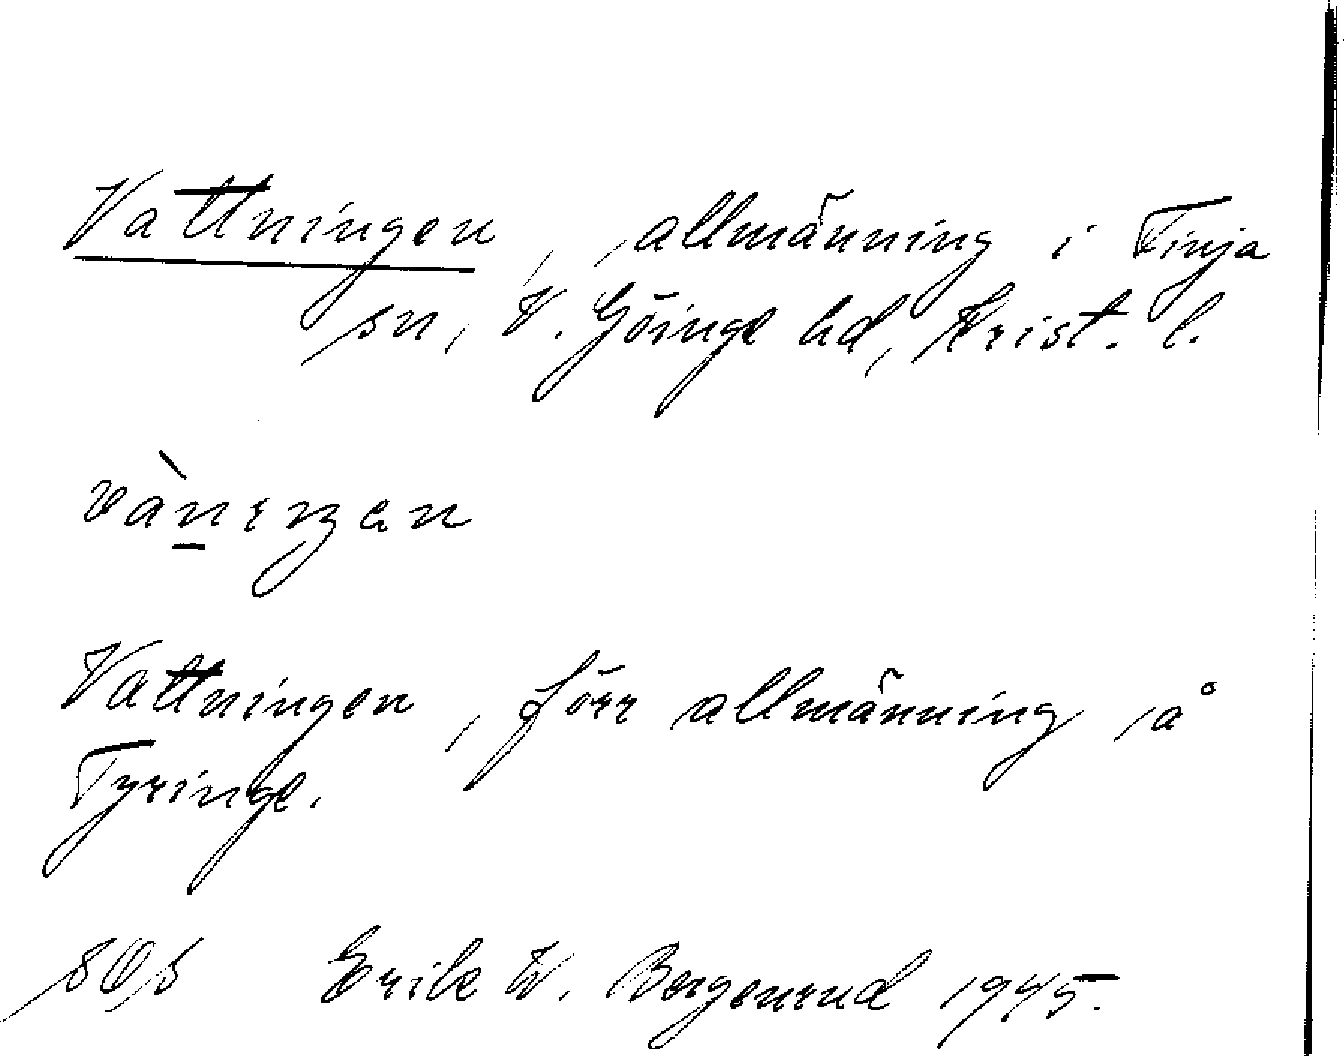 Vattningen, allmänning i Finja
sn, V. Göinge hd, Krist. l.
vànıŋen
Vattningen, förr allmänning å
Tyringe.
Erik W. Bergenrud 1945.